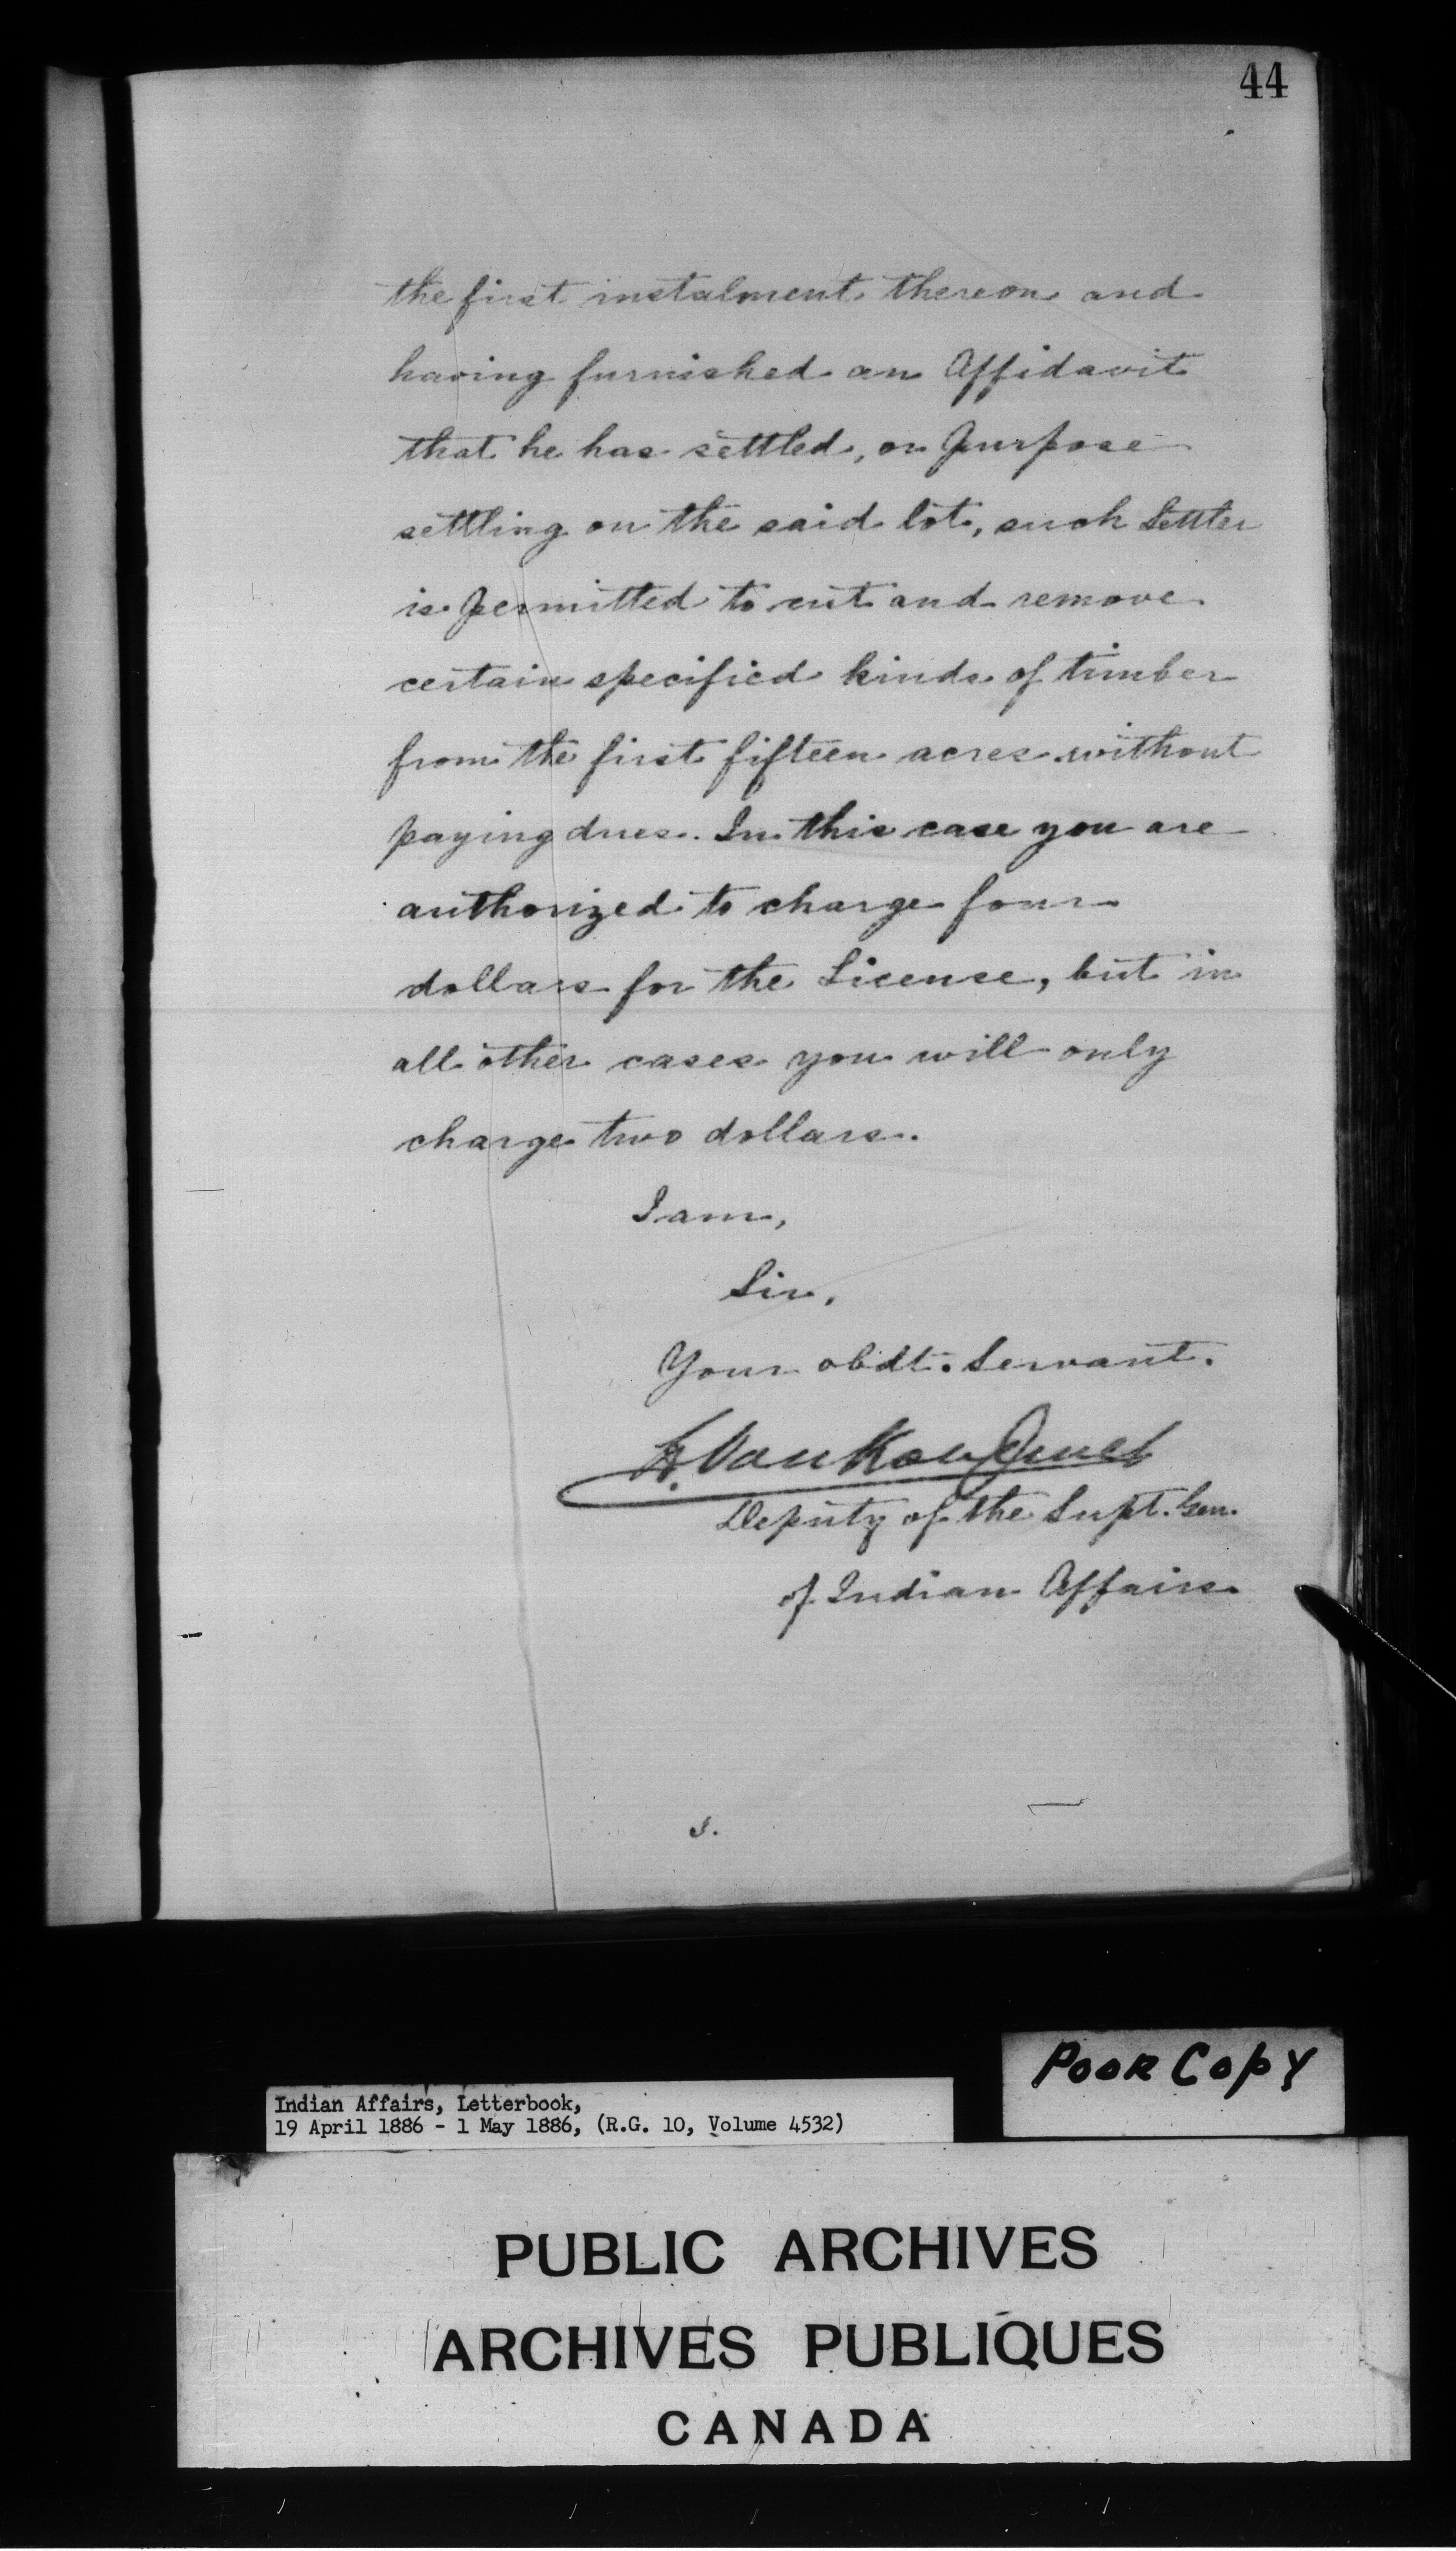 44
the first instalment thereon and
having furnished an Affidavit
that he has settled, or purpose
settling on the said lot, such Settler
is permitted to cut and remove
certain specified kinds of timber
from the first fifteen acres without
paying dues. In this case you are
authorized to charge four
dollars for the License, but in
all other cases you will only
charge two dollars.
I am,
Sir,
Your obdt. Servant.
L. VanKoughnet
Deputy of the Supt. Gen.
of Indian Affairs
Poor Copy
Indian Affairs, Letterbook,
19 April 1886 - 1 May 1886, (R.G. 10, Volume 4532)
PUBLIC ARCHIVES
ARCHIVES PUBLIQUES
CANADA